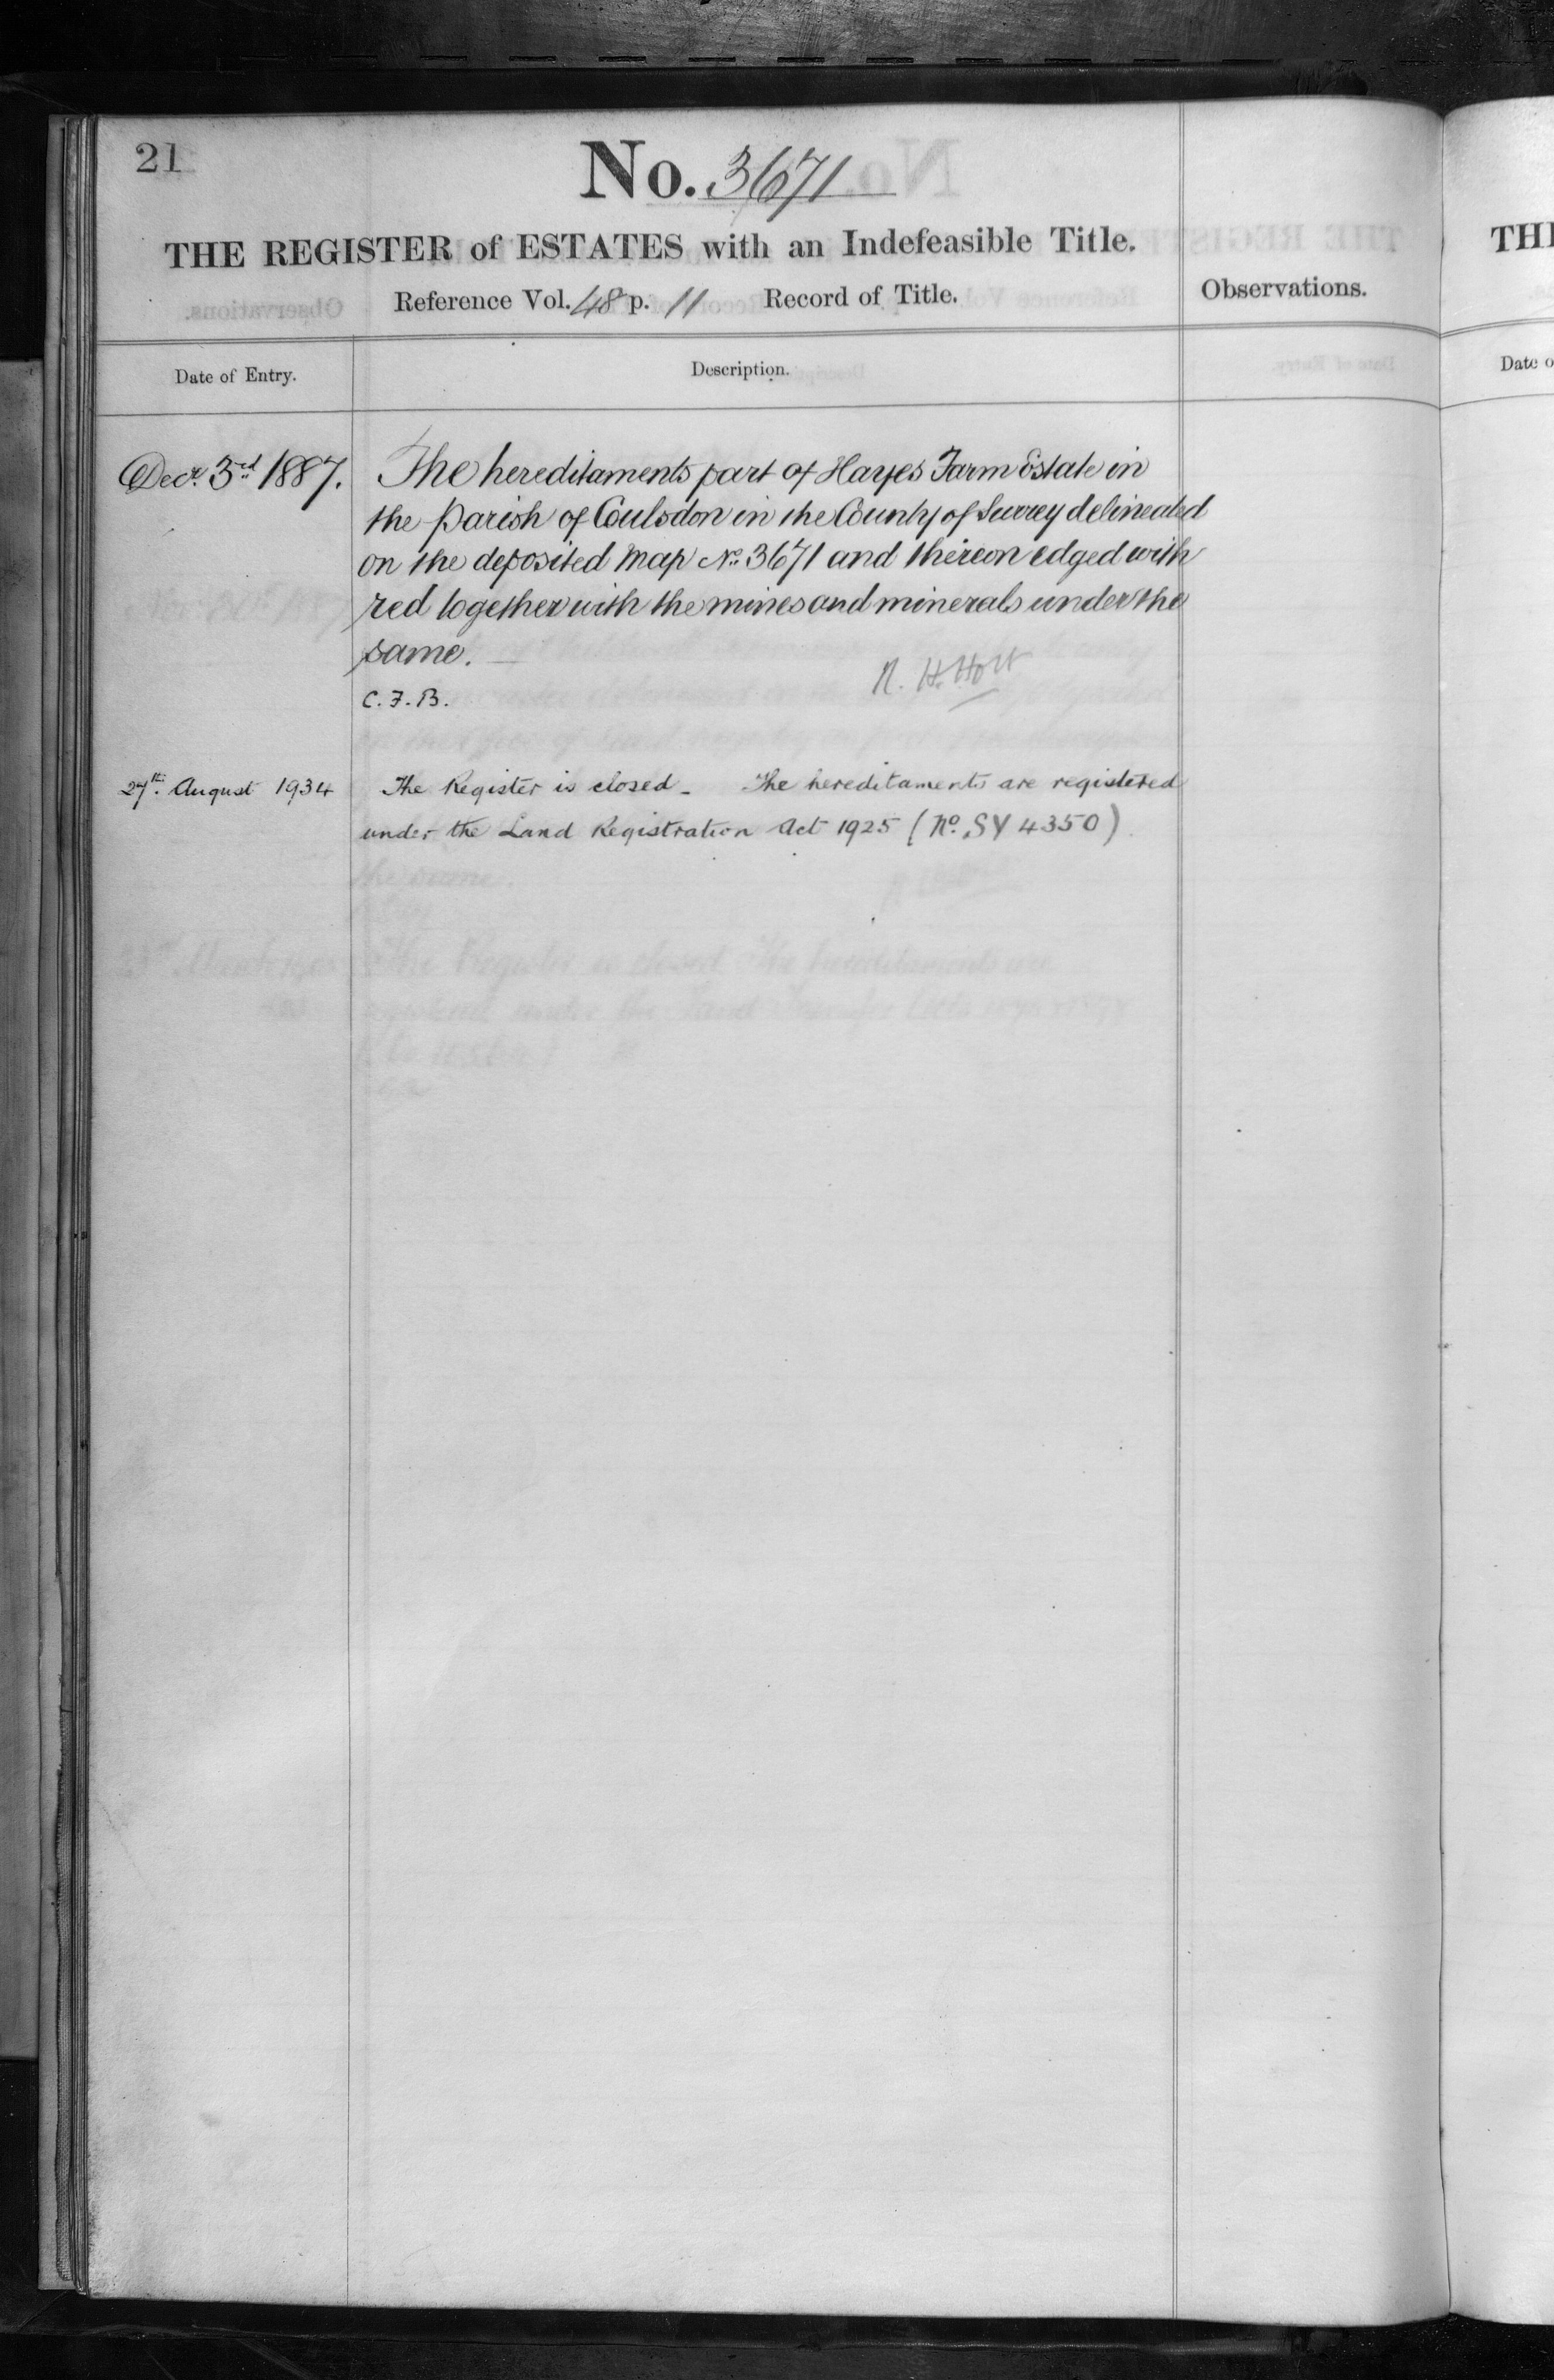 21
No. 3671
THE REGISTER of ESTATES with an Indefeasible Title.
Reference Vol. 48 p. 11 Record of Title.
Observations.
Date of Entry.
Description.
Decr. 3rd 1887.
The hereditaments part of Hayes Farm Estate in
the Parish of Coulsdon in the County of Surrey delineated
on the deposited Map No. 3671 and thereon edged with
red together with the mines and minerals under the
same.
C.F.B.
R. H. Holt
27th. August 1934
The Register is closed - The hereditaments are registered
under the Land Registration Act 1925 (No. SY 4350)
TH
Date o